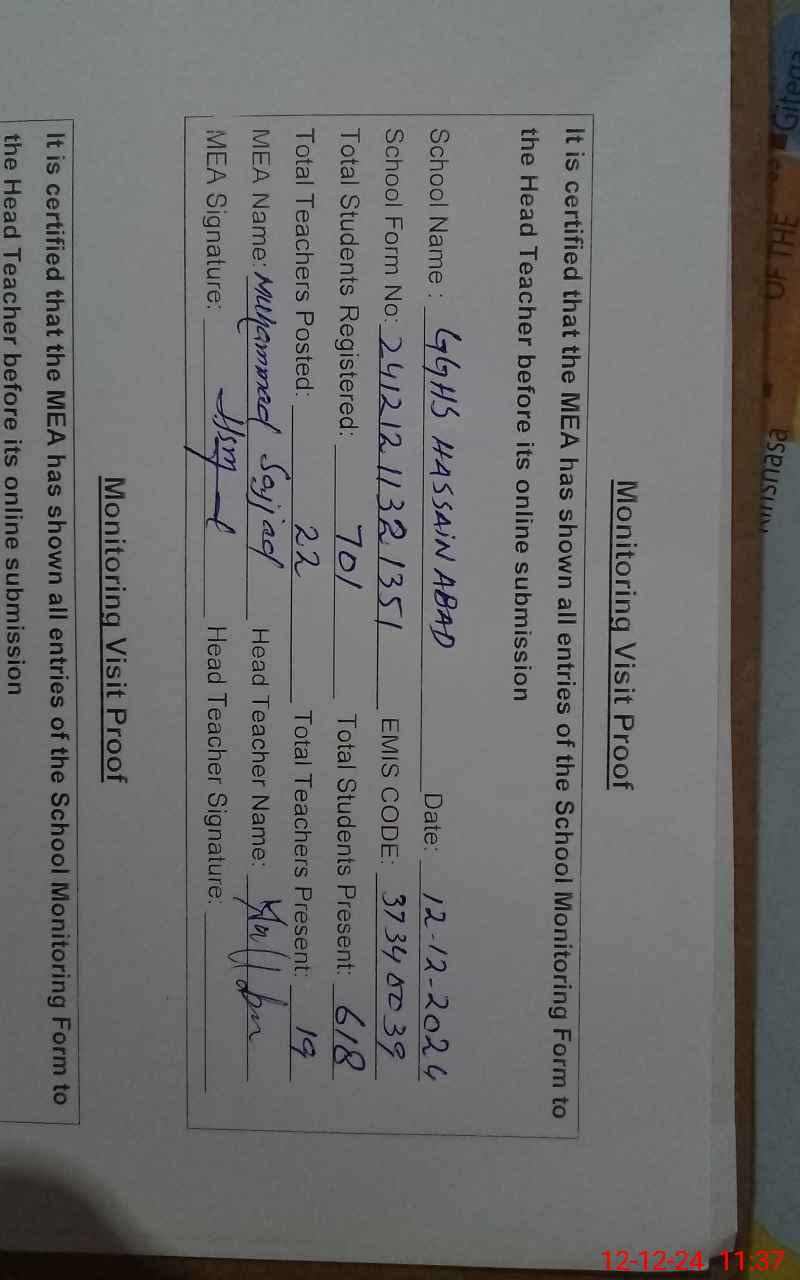 Monitoring Visit Proof
It is certified that the MEA has shown all entries of the School Monitoring Form to
the Head Teacher before its online submission
School Name : GGHS HASSAIN ABAD Date: 12-12-2024
School Form No: 24121211321351 EMIS CODE: 37340039
Total Students Registered: 701 Total Students Present: 618
Total Teachers Posted: 22 Total Teachers Present: 19
MEA Name: Muhammad Sajjad Head Teacher Name:
MEA Signature: Head Teacher Signature:
Monitoring Visit Proof
It is certified that the MEA has shown all entries of the School Monitoring Form to
the Head Teacher before its online submission
OF THE
12-12-24 11:37